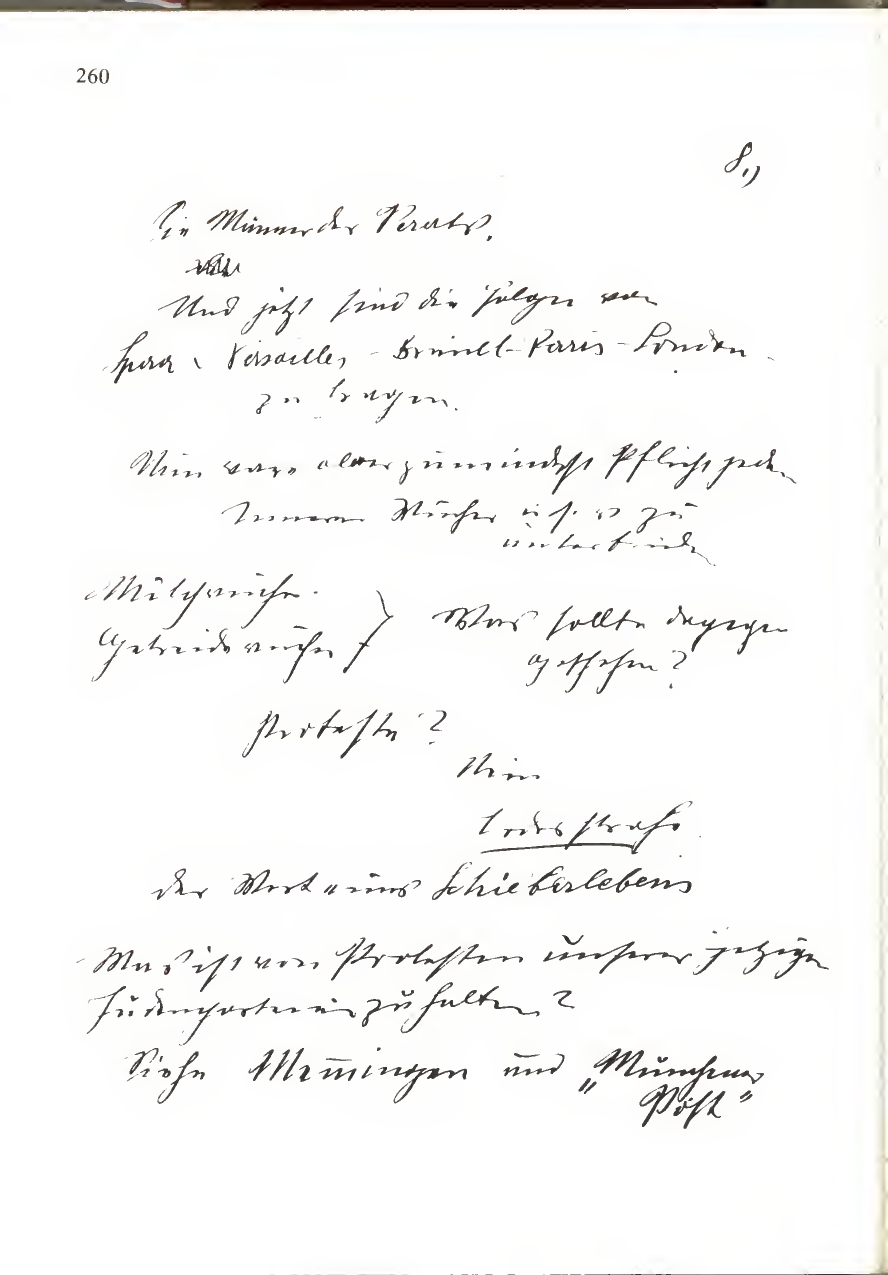 260
8.)
Die Männer des Verats.
Und jetzt sind die Folgen von
Spaa - Versailles - Brüssel - Paris - London -
zu tragen.
Nun wäre aber zumindest Pflicht jeden
Inneren Wucher u. s. w zu
unterbinden
Milchwucher.
Getreidewucher } Was sollte dagegen
geschehen?
Proteste?
Nein
Todesstrafe
der Wert uns Schieberlebens
Was ist von Protesten unserer jetzigen
Judenparteien zu halten?
Siehe Memmingen und „Münchener
Post"